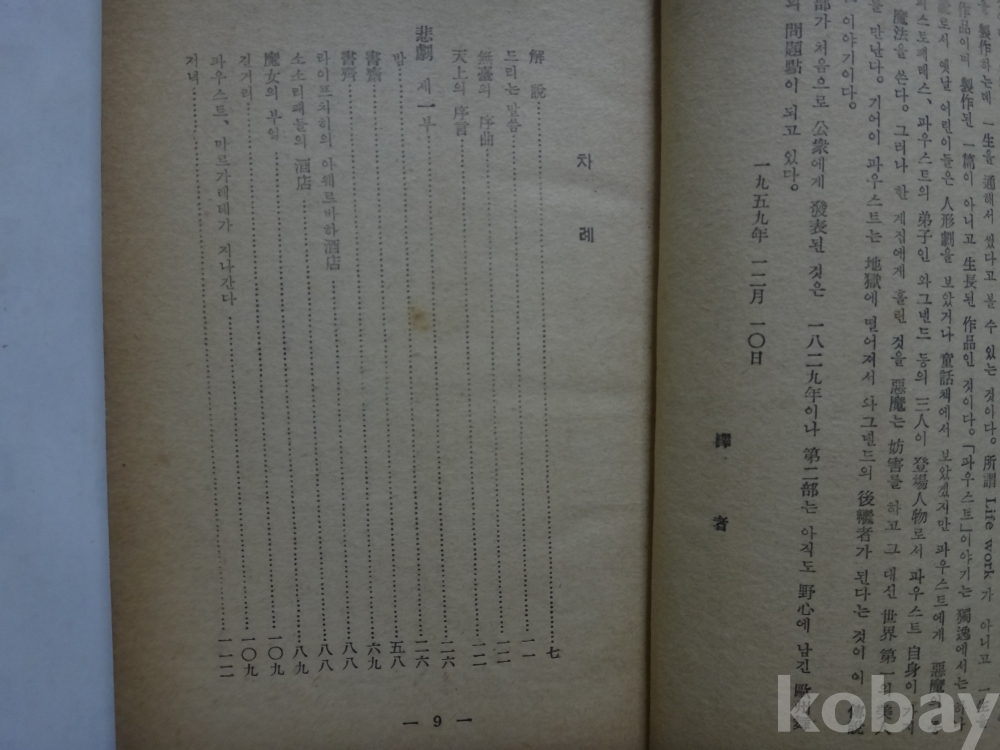 製作하는데 一生을 通해서 썼다고 볼 수 있는 것이다. 所謂 Life work 가 아니고
作品이며 製作된 一篇이 아니고 生長된 作品인 것이다. 「파우스트」이야기는 獨逸에서는
로서 옛날 어린이들은 人形劇을 보았거나 童話책에서 보았겠지만 파우스트에게 惡魔
스토페레스, 파우스트의 弟子인 와그넨드 등의 三人이 登場人物로서 파우스트 自身이
魔法을 쓴다. 그러나 한 계집에게 홀린 것을 惡魔는 妨害를 하고 그 대신 世界 第一의
를 만난다. 기어이 파우스트는 地獄에 떨어져서 와그넨드의 後繼者가 된다는 것이 이 傳說
이야기이다.
部가 처음으로 公衆에게 發表된 것은 一八二九年이나 第二部는 아직도 野心에 남긴
의 問題點이 되고 있다.
一九五九年 一二月 一〇日
譯 者
차 례
解 說 七
드리는 말씀 一一
無臺의 序曲 一二
天上의 序言 二六
悲劇 제一부 二六
밤 五八
書齋 六九
書齊 八八
라이프치히의 아웨르바하 酒店 八八
소소리패들의 酒店 八九
魔女의 부엌 一〇九
길거리 一〇九
파우스트, 마르가레테가 지나간다 一二二
저녁
— 9 —
kobay